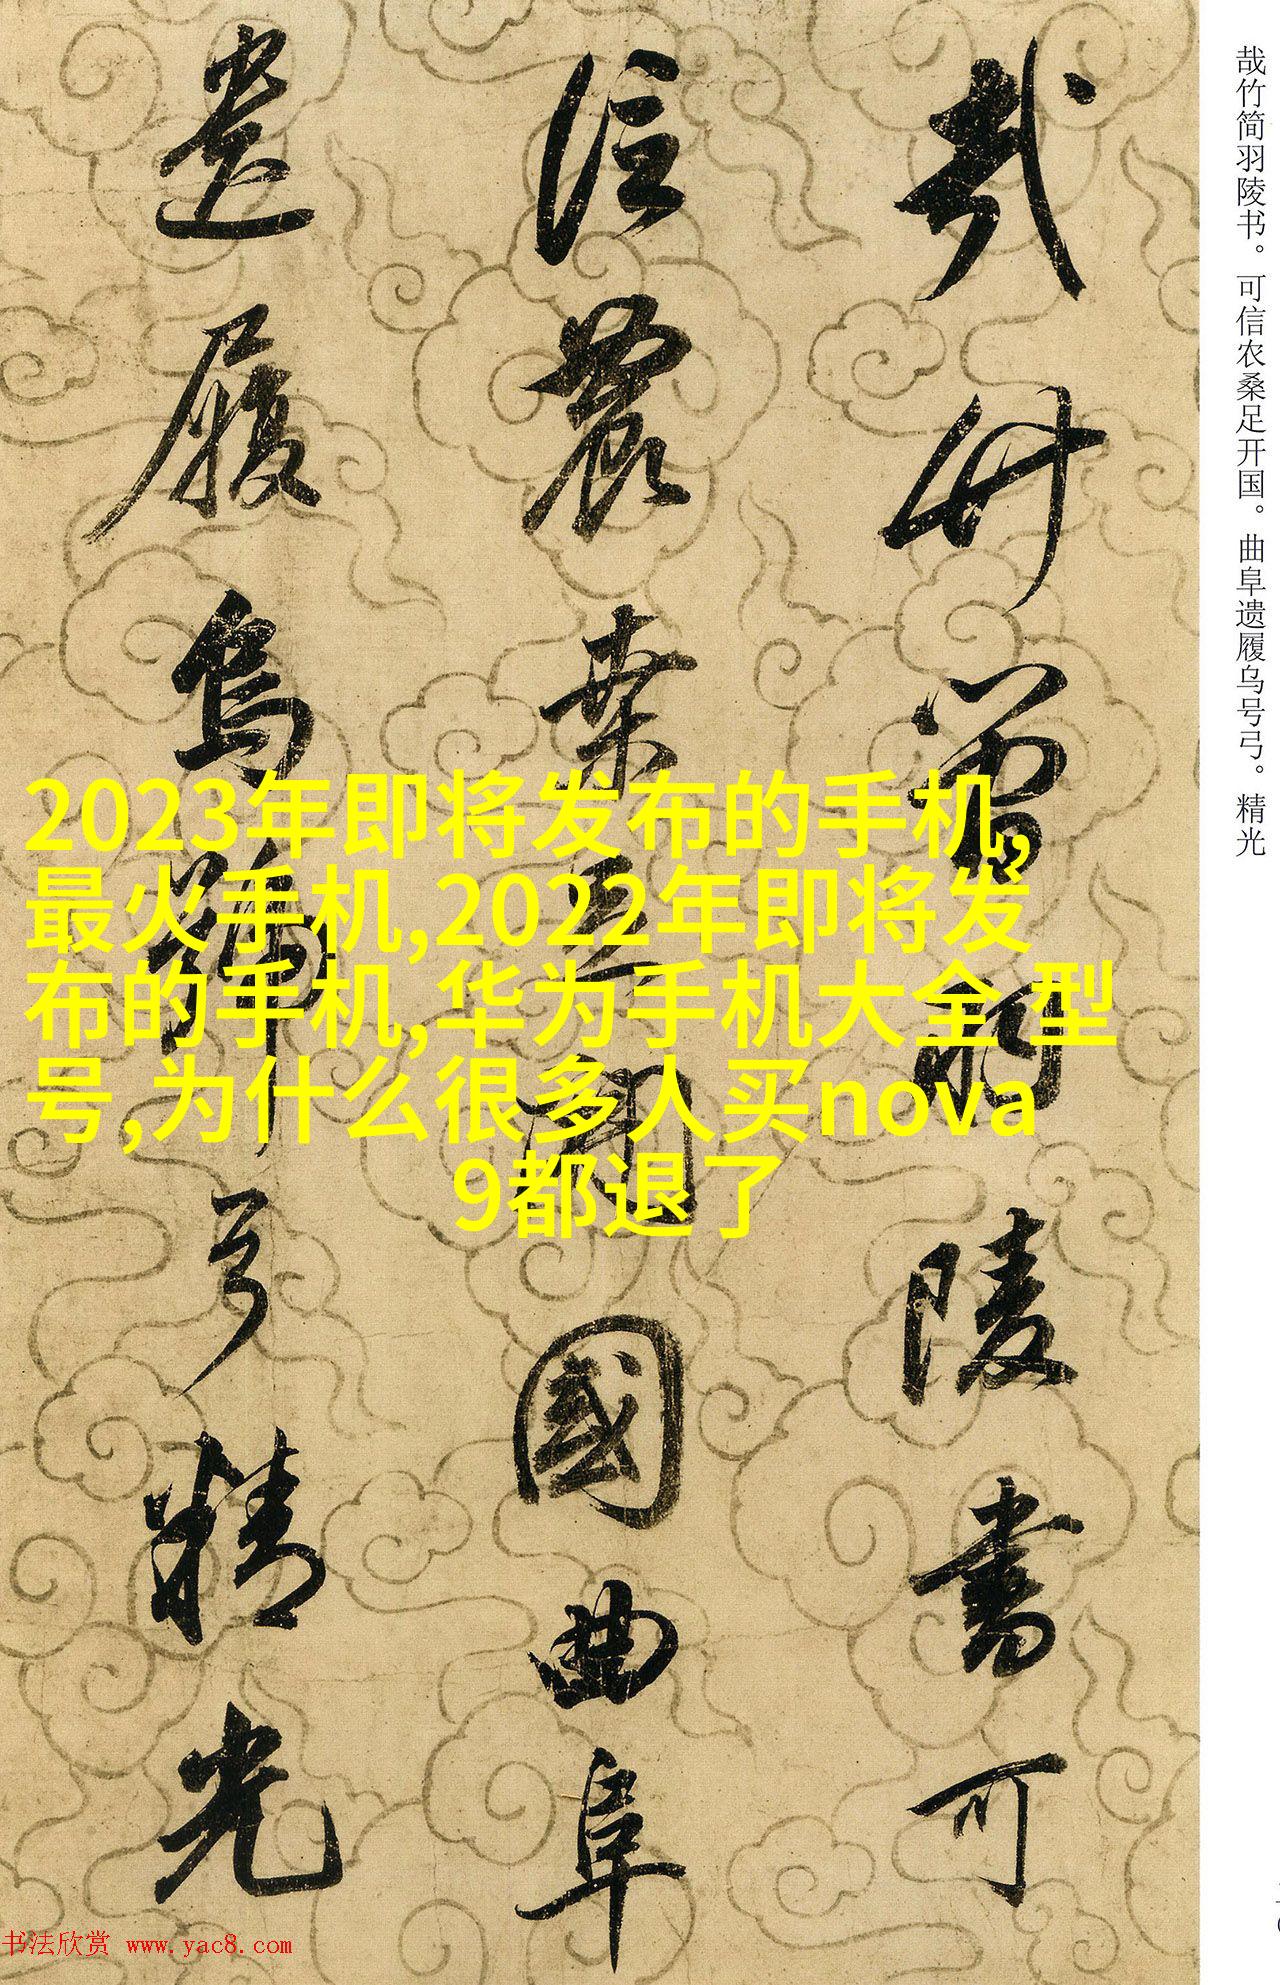 哉竹简羽陵书。可信农桑足开国。曲阜遗履乌号弓。精光
哉竹簡羽陵書可
信農桒足開國曲阜
遺履烏號弓精光
2023年即将发布的手机,
最火手机,2022年即将发
布的手机,华为手机大全 型
号,为什么很多人买nova
9都退了
书法欣赏 www.yac8.com